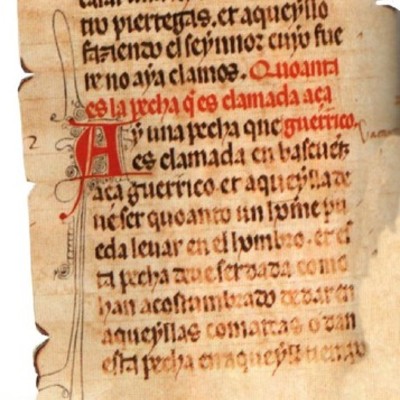 tro piertegas. et aqueyllo
faziendo el seynnor cuyo fue
re no aya clamos. Quoanta
es la pecha q̃ es clamada aça
Ay una pecha que guerrico,
es clamada en bascuenz
aça guerrico et aqueylla de
ue ser quoanto un hõme pu
eda leuar en el hombro. et es
ta pecha deue ser dada como
han acostumbrado de dar en
aqueyllas comarcas o dan
esta pecha en aqueyll tiempo